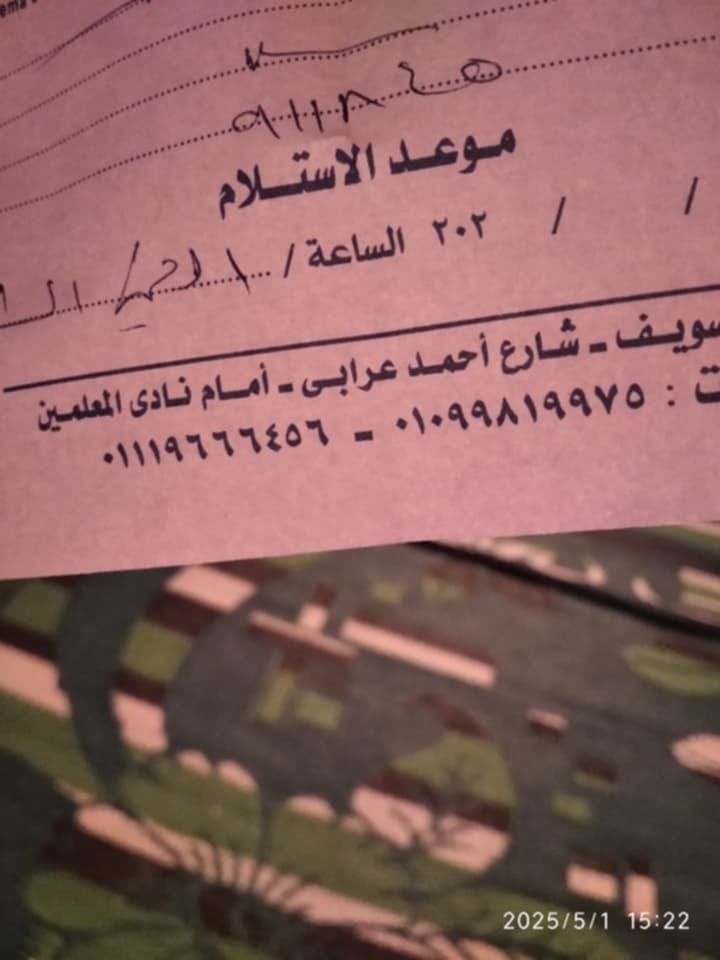 موعد الاستلام
/ / ٢٠٢ الساعة /
سويف - شارع أحمد عرابى - أمام نادى المعلمين
ت : ٠١٠٩٩٨١٩٩٧٥ - ٠١١١٩٦٦٦٤٥٦
2025/5/1 15:22